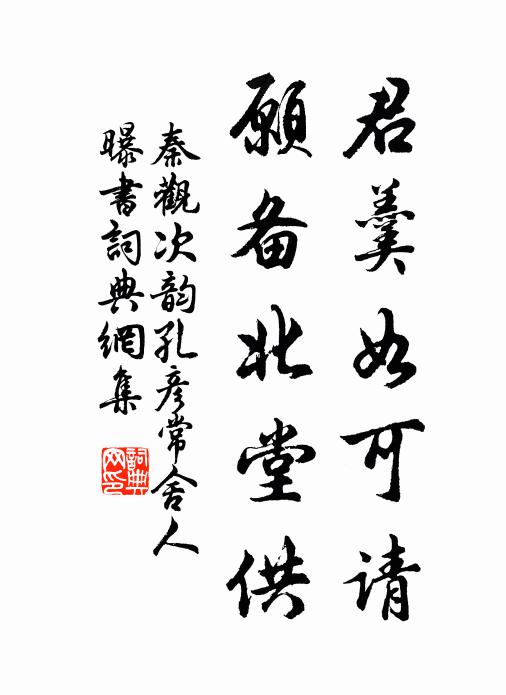 君羹如可请
願备北堂供
秦觀次韵孔彦常舍人
曝書詞典網集
詞典网印